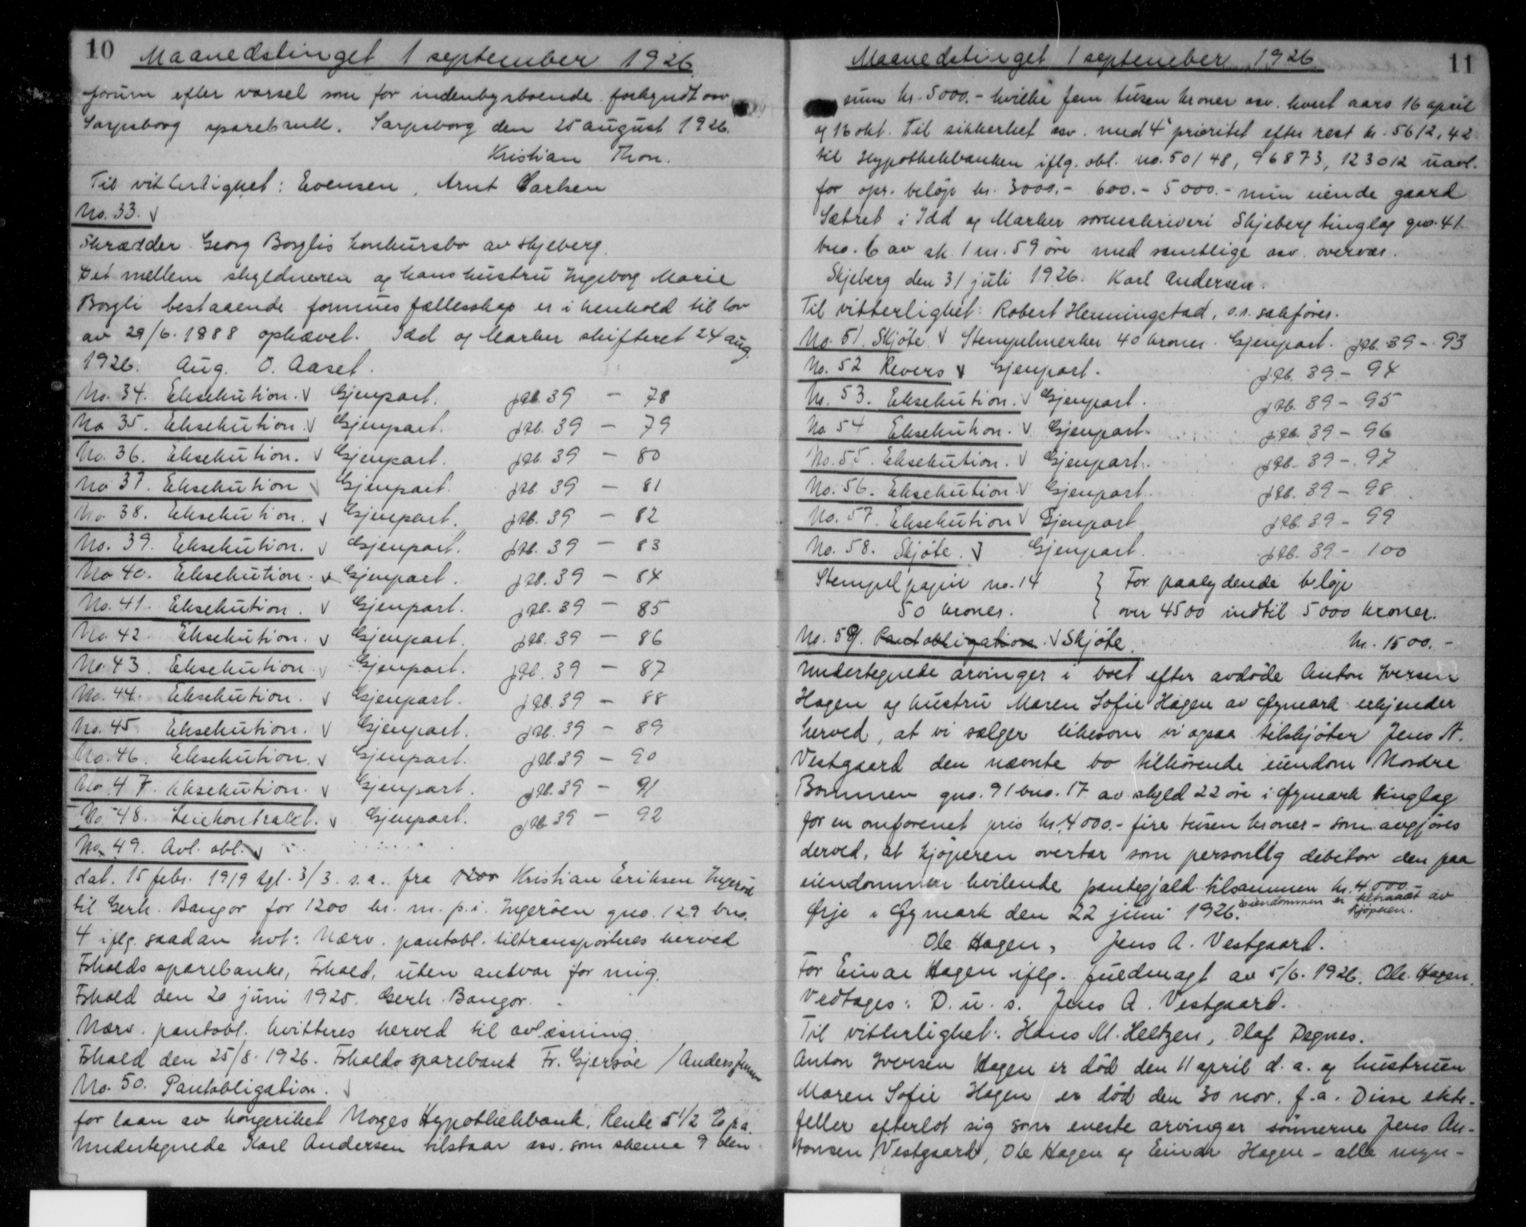 10 Maanedstinget 1 september 1926
forum efter varsel som for indenbysboende forkyndt osv
Sarpsborg sparebank. Sarpsborg den 25 august 1926.
Kristian Thon.
Til vitterlighet: Evensen, Arnt Carlsen
No. 33. √
Skrædder Georg Borglis konkursbo av Skjeberg.
Det mellem skyldneren og hans hustru Ingeborg Marie
Borgli bestaaende formues fællesskap er i henhold til lov
av 29/6. 1888 ophævet. Idd og Marker skifteret 24 aug
1926. Aug. O. Aaset.
No. 34. Eksekution. √ Gjenpart. pb. 39 — 78
No 35. Eksekution. √ Gjenpart. pb. 39 — 79
No. 36. Eksekution. √ Gjenpart. pb. 39 — 80
No 37. Eksekution √ Gjenpart. pb. 39 — 81
No 38. Eksekution. √ Gjenpart. pb. 39 — 82
No. 39. Eksekution. √ Gjenpart. pb. 39 — 83
No 40. Eksekution. √ Gjenpart. pb. 39 — 84
No. 41. Eksekution. √ Gjenpart. pb. 39 — 85
No 42. Eksekution. √ Gjenpart. pb. 39 — 86
No. 43. Eksekution √ Gjenpart. pb. 39 — 87
No. 44. Eksekution. √ Gjenpart. pb. 39 — 88
No. 45 Eksekution. √ Gjenpart. pb. 39 — 89
No. 46. Eksekution. √ Gjenpart. pb. 39 — 90
No. 47. Eksekution. √ Gjenpart. pb. 39 — 91
No. 48. Leiekontrakt. √ Gjenpart. pb. 39 — 92
No. 49. Avl. obl. √
dat. 15 febr. 1919 tgl. 3/3. s.a. fra Kristian Eriksen Ingerøen
til Gerh. Bangor for 1200 kr. m. p. i. Ingerøen gno. 129 bno.
4 iflg. saadan not: Nærv. pantobl. tiltransporteres herved
Fiholds sparebank, Fihold, uten ansvar for mig.
Fihold den 20 juni 1925. Gerh. Bangor.
Nærv. pantobl. kvitteres herved til avlæsning.
Fihold den 25/8. 1926. Fiholds sparebank Fr. Gjersøe / Anders Jensen
No. 50. Pantobligation. √
for laan av kongeriket Norges Hypothekbank. Rente 5 1/2 % p.a.
Undertegnede Karl Andersen tilstaar osv. som skema 9 den
Maanedstinget 1 september 1926 11
sum kr. 5000.- hvilke fem tusen kroner osv. hvert aars 16 april
og 16 okt. Til sikkerhet osv. med 4' prioritet efter rest kr. 5612,42
til Hypothekbanken iflg. obl. no. 50148, 96873, 123012 uavl.
for opr. beløp kr. 3000.- 600.- 5000.- min eiende gaard
Sætret i Idd og Marker sorenskriveri Skjeberg tinglag gno. 41
bno. 6 av sk. 1 m. 59 øre med samtlige osv. overvær.
Skjeberg den 31 juli 1926. Karl Andersen.
Til vitterlighet: Robert Henningstad, o.r. sakfører.
No. 51. Skjøte. √ Stempelmerker 40 kroner. Gjenpart. pb. 39 – 93
No. 52 Revers √ Gjenpart. pb. 39 – 94
No. 53. Eksekution. √ Gjenpart. pb. 39 – 95
No. 54 Eksekution. √ Gjenpart. pb. 39 – 96
No. 55. Eksekution. √ Gjenpart. pb. 39 – 97
No. 56. Eksekution √ Gjenpart. pb. 39 – 98
No. 57. Eksekution √ Gjenpart pb. 39 – 99
No. 58. Skjøte. √ Gjenpart. pb. 39 – 100
Stempelpapir no. 14 } For paalydende beløp
50 kroner. { over 4500 indtil 5000 kroner.
No. 59. Pantobligation. √ Skjøte. kr. 1500.-
Undertegnede arvinger i boet efter avdøde Anton Iversen
Hagen og hustru Maren Sofie Hagen av Øymark erkjender
herved, at vi sælger likesom vi ogsaa tilskjøter Jens A.
Vestgaard den nævnte bo tilhørende eiendom Nordre
Bommen gno. 91 bno. 17 av skyld 22 øre i Øymark tinglag
for en omforenet pris kr. 4000.- fire tusen kroner – som avgjøres
derved, at kjøperen overtar som personlig debitor den paa
eiendommen hvilende pantegjæld tilsammen kr. 4.000.
eiendommen er tiltraadt av kjøperen.
Ørje i Øymark den 22 juni 1926.
Ole Hagen, Jens A. Vestgaard.
For Einar Hagen iflg. fuldmagt av 5/6. 1926. Ole Hagen.
Vedtages: D. u. s. Jens A. Vestgaard.
Til vitterlighet: Hans M. Heltzen, Olaf Degnes.
Anton Iversen Hagen er død den 11 april d. a. og hustruen
Maren Sofie Hagen er død den 30 nov. f.a. Disse ekte-
feller efterlot sig som eneste arvinger sønnerne Jens An-
tonsen Vestgaard, Ole Hagen og Einar Hagen – alle myn-